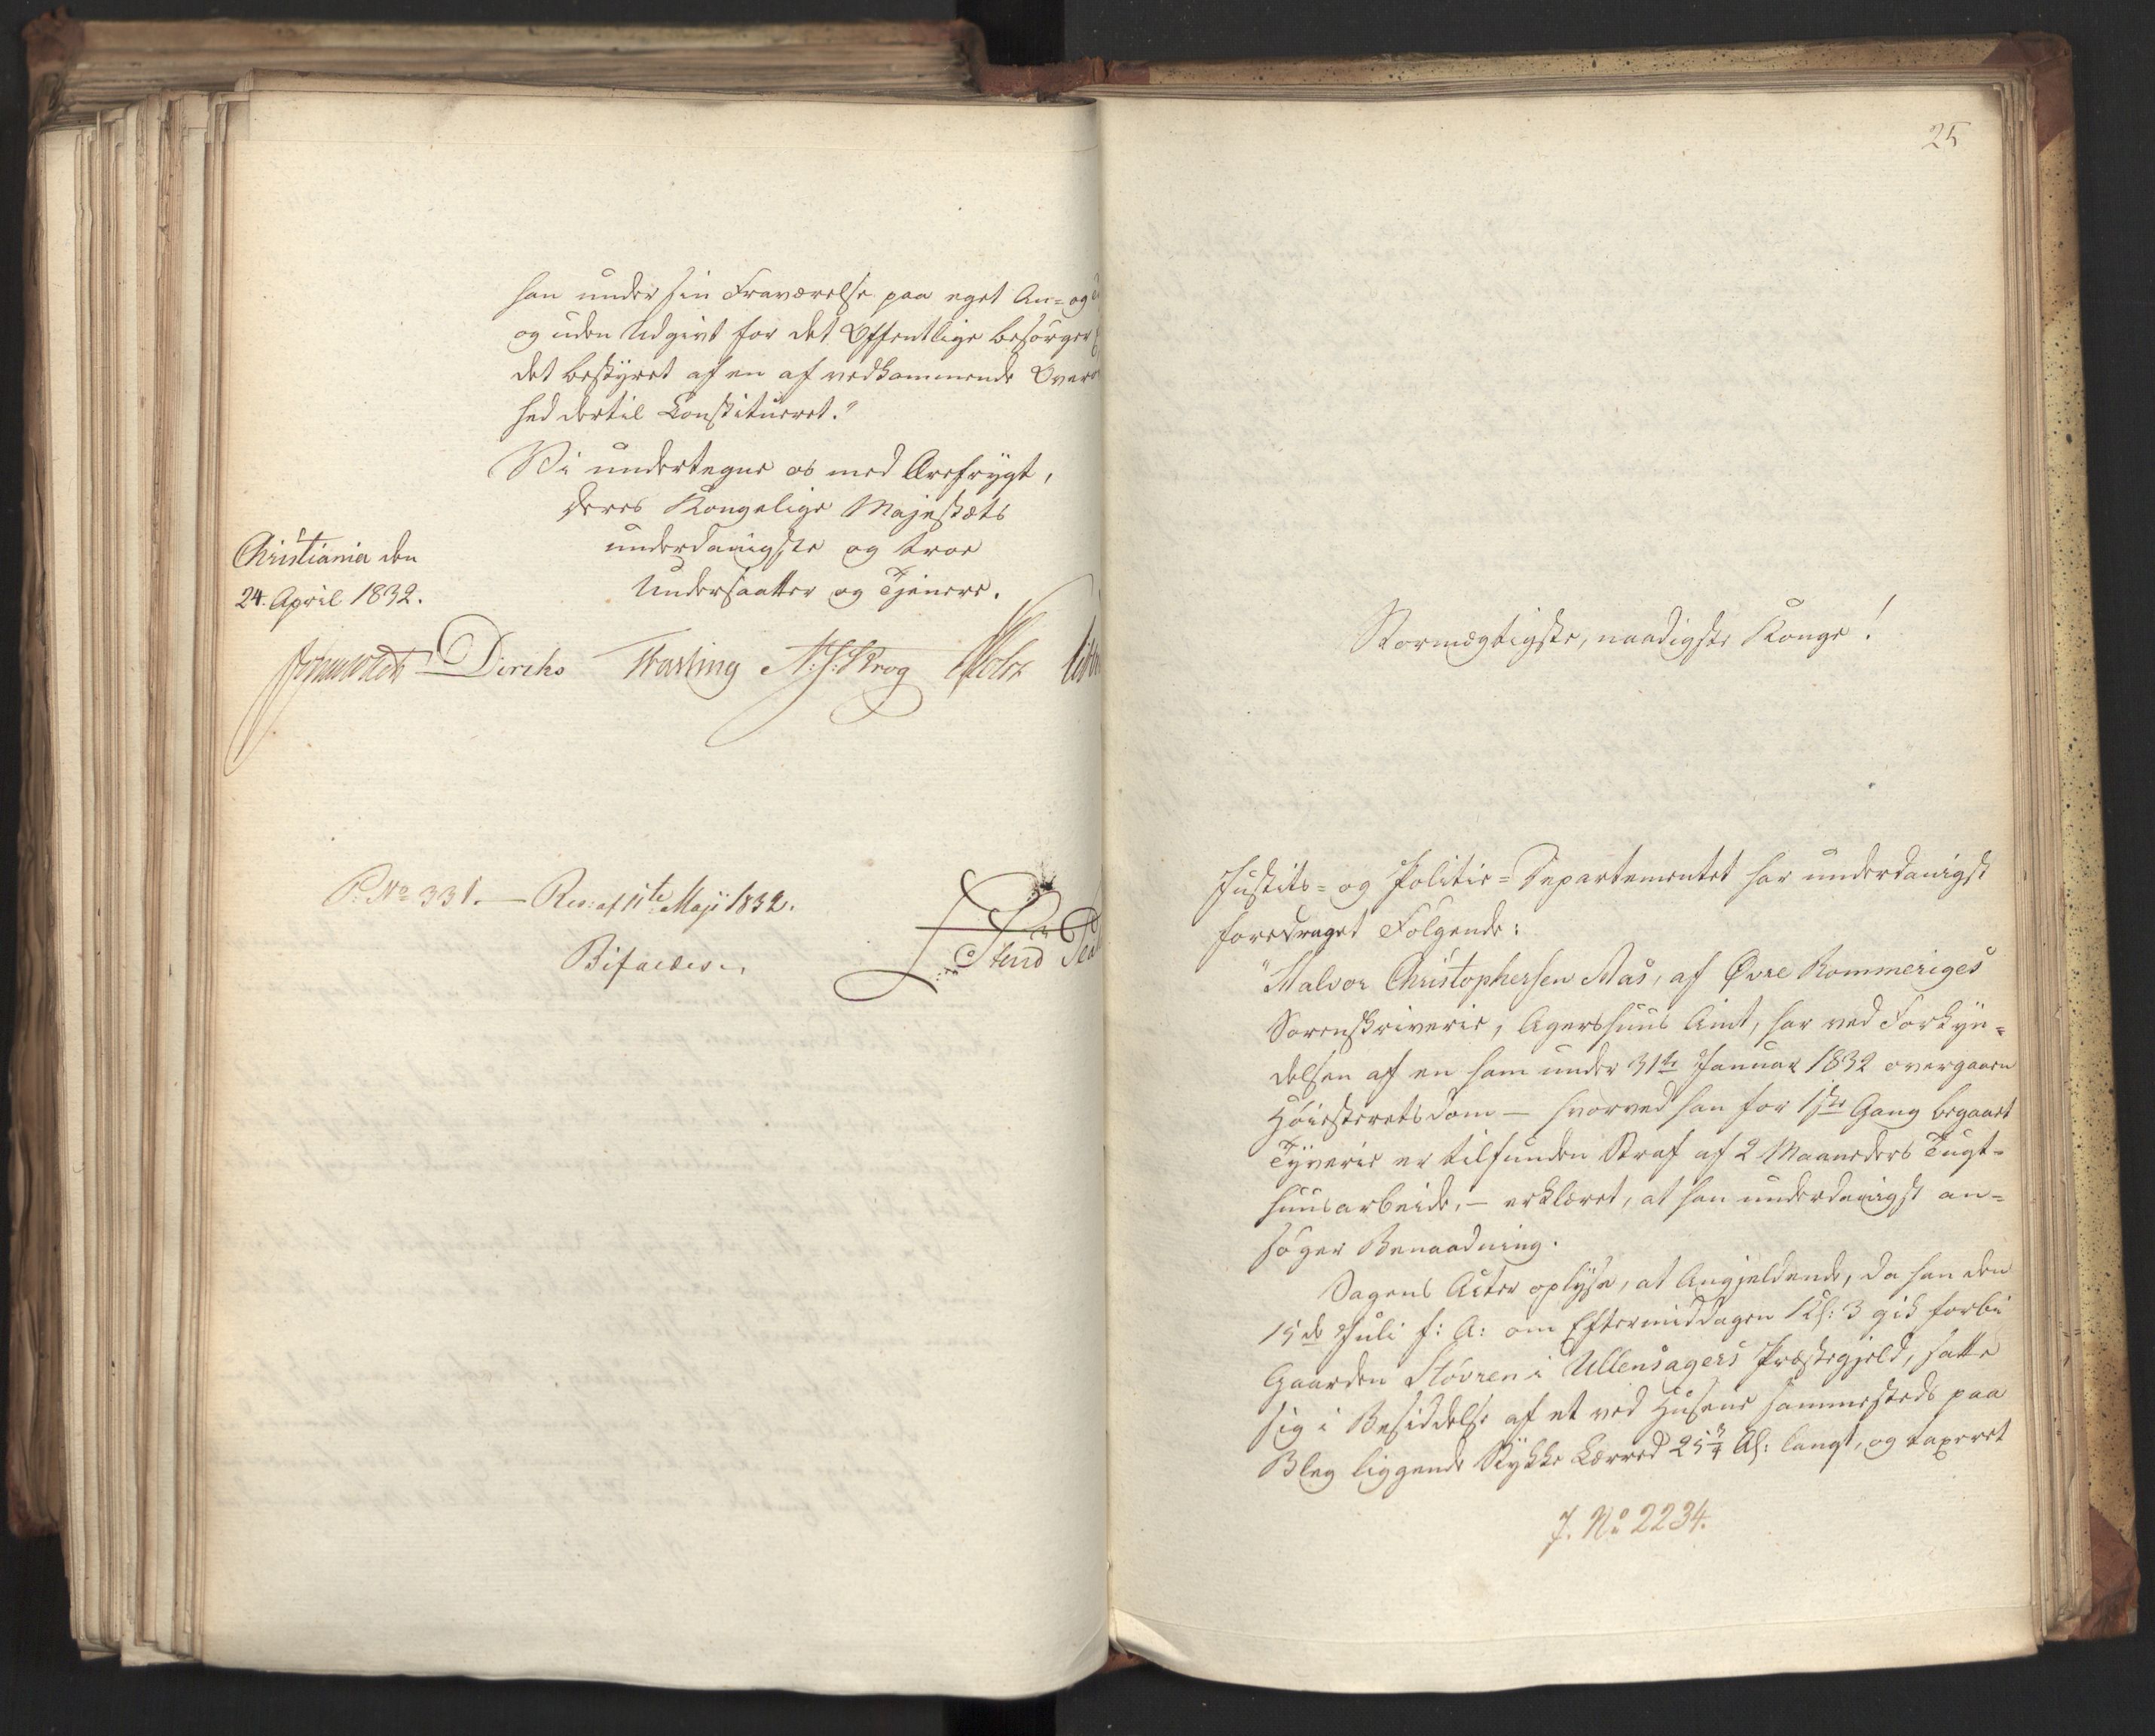 han under sin Fraværelse paa eget An- og
og uden Udgivt for det Offentlige besørger
det bestyret af en af vedkommende Øvrig
hed dertil Constitueret."
Vi undertegne os med Ærefrygt,
Deres Kongelige Majestæts
underdanigste og troe
Undersaatter og Tjenere.
Christiania den
24. April 1832.
Diriks Fasting N: J: Krog Holst
P. No 331. — Res: af 11te Maji 1832.
Bifaldes.
25
Stormægtigste, naadigste Konge!
Justits- og Politie-Departementet har underdanigst
foredraget Følgende:
"Halvor Christophersen Aas, af Øvre Rommeriges
Sorenskriverie, Agershuus Amt, har ved Forkyn-
delsen af en ham under 31te Januar 1832 overgaaen
Høiesteretsdom — hvorved han for 1ste Gang begaaet
Tyverie er tilfunden Straf af 2 Maaneders Tugt-
huusarbeide, — erklæret, at han underdanigst an-
søger Benaadning.
Sagens Acter oplyse, at Angjeldende, da han den
15de Juli f: A: om Eftermiddagen Kl: 3 gik forbi
Gaarden Hovren i Ullensagers Præstegjeld, satte
sig i Besiddelse af et ved Husene sammesteds paa
Bleg liggende Stykke Lærred 25 3/4 Al: langt, og taxeret
J. No 2234.